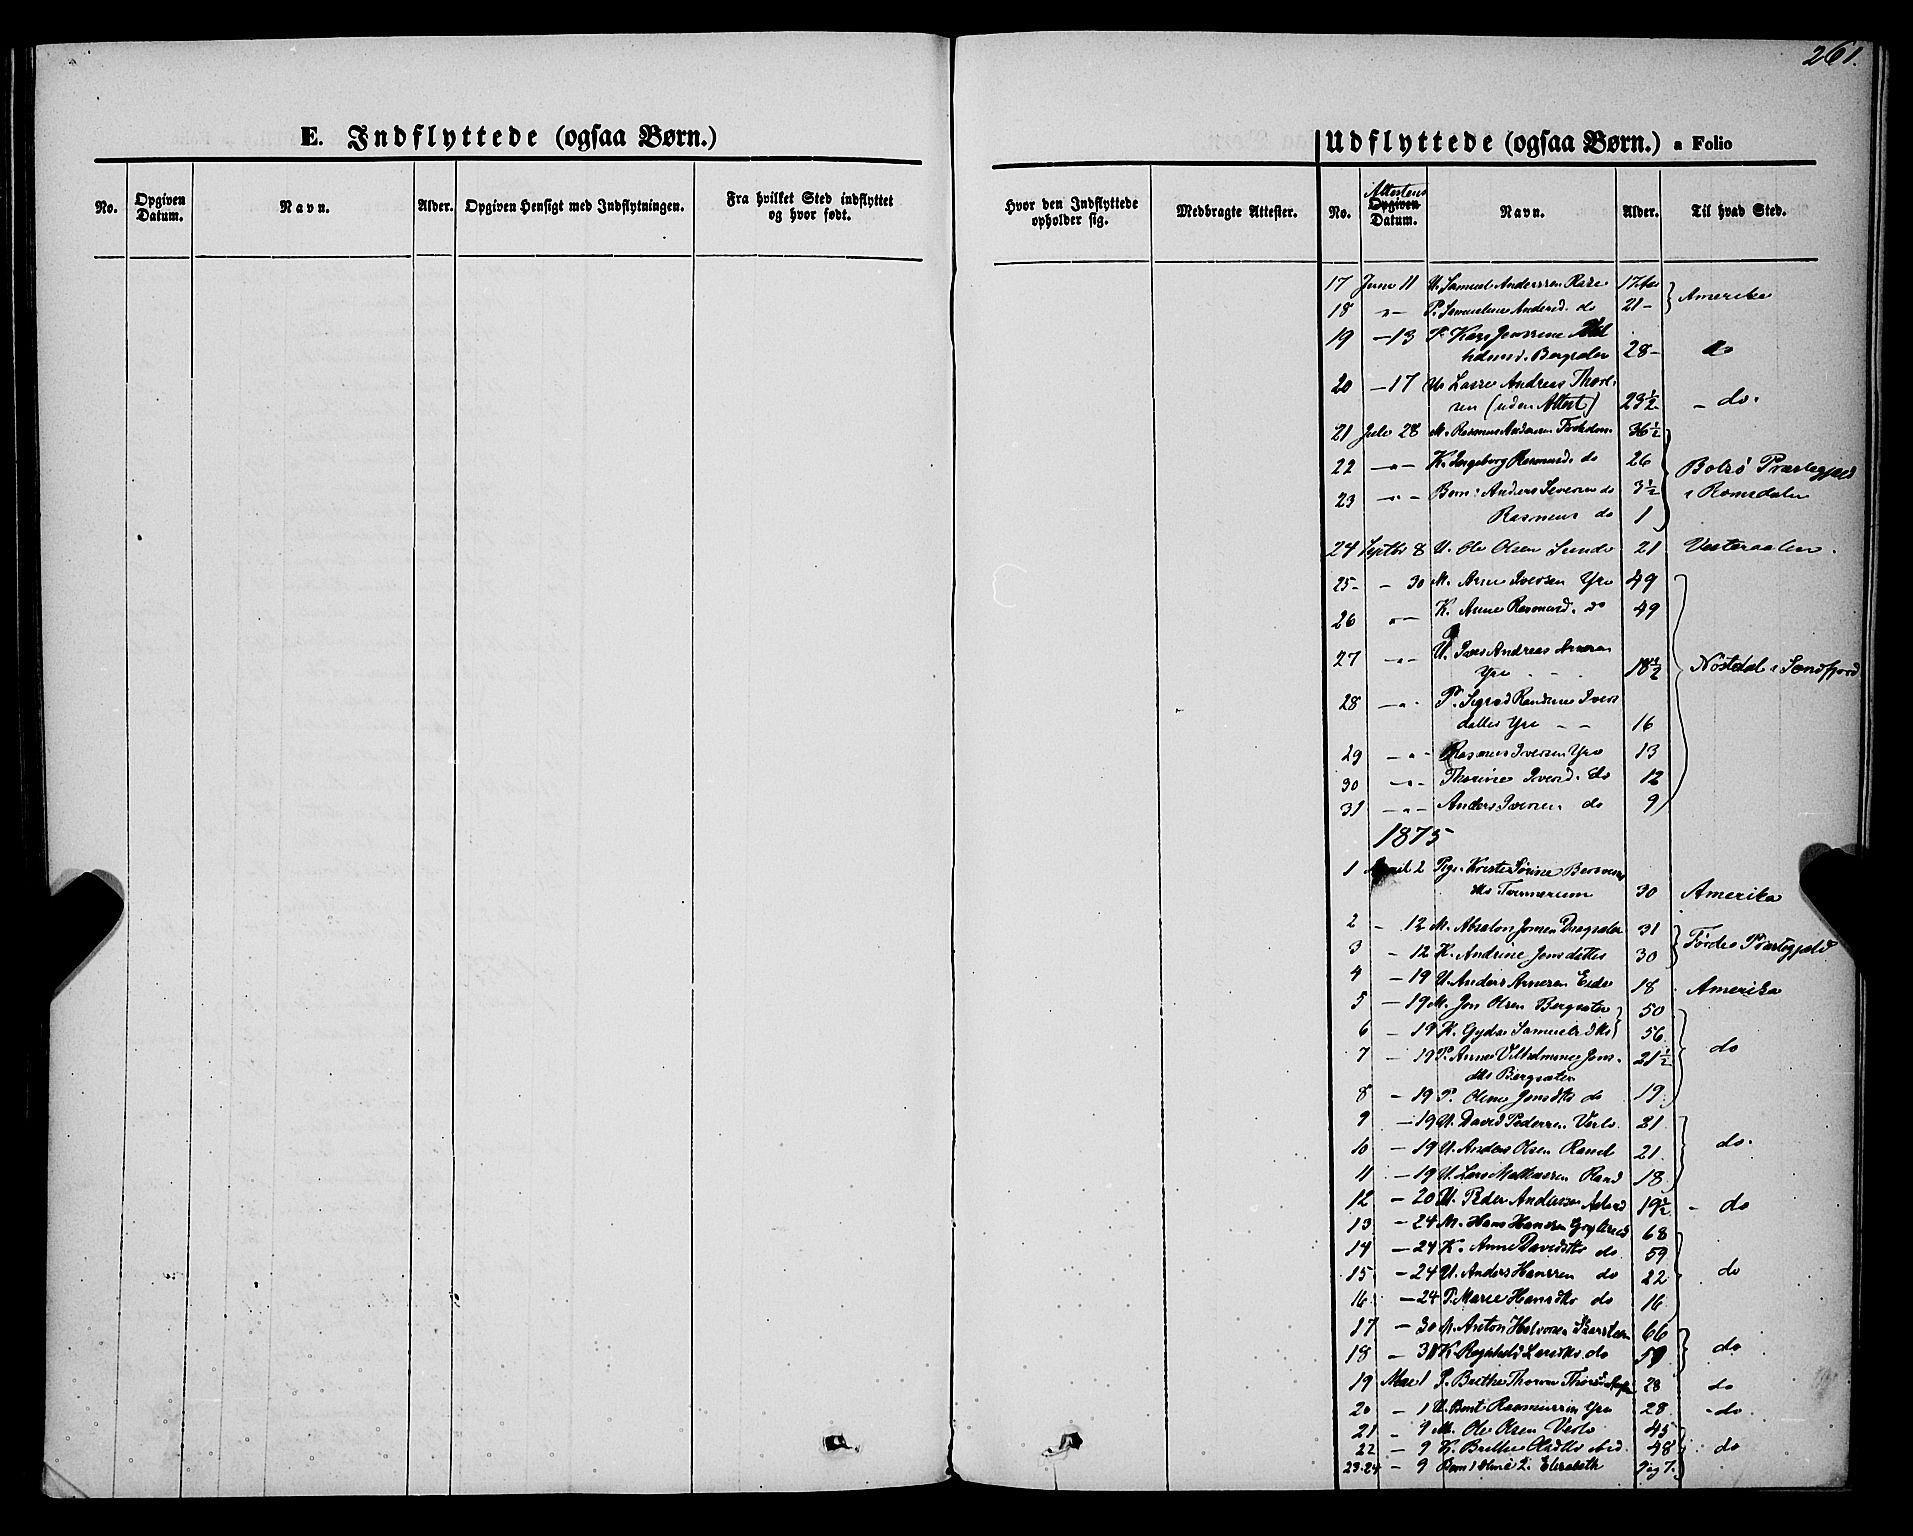 261.
E. Indflyttede (ogsaa Børn.)
No. Opgiven Datum. Navn. Alder. Opgiven Hensigt med Indflytningen. Fra hvilket Sted indflyttet og hvor født.
Hvor den Indflyttede opholder sig. Medbragte Attester.
Udflyttede (ogsaa Børn.) a Folio
No. Attestens Opgiven Datum. Navn. Alder. Til hvad Sted.
17 Juni 11 U. Samuel Anderssen 17 Aar
18 " - P. Andersd. do 21 - Amerika
19 - 13 P.
Bergsæter 28 - do
20 - 17 U. Lasse Andreas
(uden Attest) 23½ - do.
21 Juli 28 M. Rasmus Andersen 36½
22 - " - K. Ingeborg Rasmusd. do 26 Bolsø Præstegjeld
23 " - Børn: Anders Severin do 3½ i Romsdalen
Rasmus do 1
24 Septbr 8 U. Ole Olsen Sunde 21 Vesteraalen.
25 - - 30 M. Arne Iversen Yri 49
26 " - K. Anne Rasmusd. do 49
27 - " - U. Andreas
Yri - - 18½ i Søndfjord
28 - " - P. Ivers
datter Yri - - 16
29 - " - Rasmus Iversen Yri 13
30 - " - Iversd. do 12
31 - " - Anders Iversen do 9
1875
1 April 2 Pige Sørine
30 Amerika
2 - 12 M. Absalon Jonsen 31
3 - 12 K. Andrine Jonsdatter 30 Førde Præstegjeld
4 - 19 U. Anders Arnesen Eide 18 Amerika
5 - 19 M. Jon Olsen Bergsæter 50
6 - 19 K. Samuelsdtr 56
7 - 19 P. Anne Vilhelmine Jons- 21½ do
dtr Bergsæter
8 - 19 P. Oline Jonsdtr do 19
9 - 19 U. David Pedersen 21
10 - 19 U. Anders Olsen Rand 21 do.
11 - 19 U. Lars Rand 18
12 - 20 U. Peder Andersen 19½ - do
13 - 24 M. Hans Hansen 68
14 - 24 K. Anne Davidsdtr do 59
15 - 24 U. Anders Hanssen do 22 do
16 - 24 P. Marie Hansdtr do 16
17 - 30 M. Anton 66
18 - 30 K. Larsdtr. do 59 do
19 Mai 1 P. Brithe 28 do
20 - 1 U. Bent Rasmussen Yri 28 - do.
21 - 9 M. Ole Olsen 45
22 - 9 K. Brithe 48 do
23.24 - 9 Børn 1 Oline 2. Elisabeth 9 og 7.